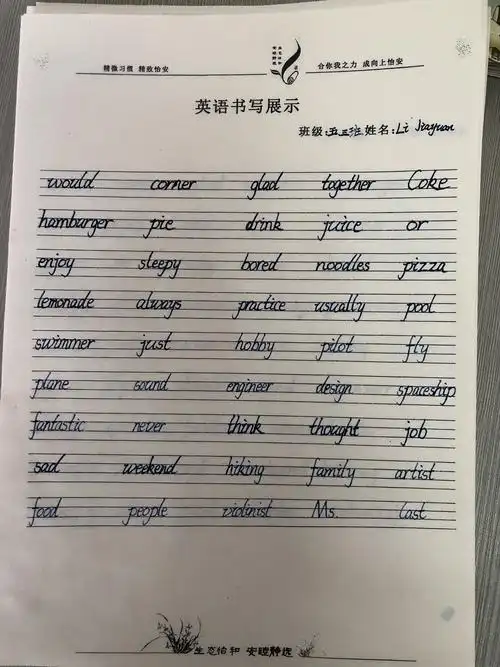 精微习惯 精致怡安
合你我之力 成向上怡安
英语书写展示
班级:五三班 姓名:Li Jiayuan
would corner glad together Coke
hamburger pie drink juice or
enjoy sleepy bored noodles pizza
lemonade always practice usually pool
swimmer just hobby pilot fly
plane sound engineer design spaceship
fantastic never think thought job
sad weekend hiking family artist
food people violinist Ms. last
生态怡和 安暖静远